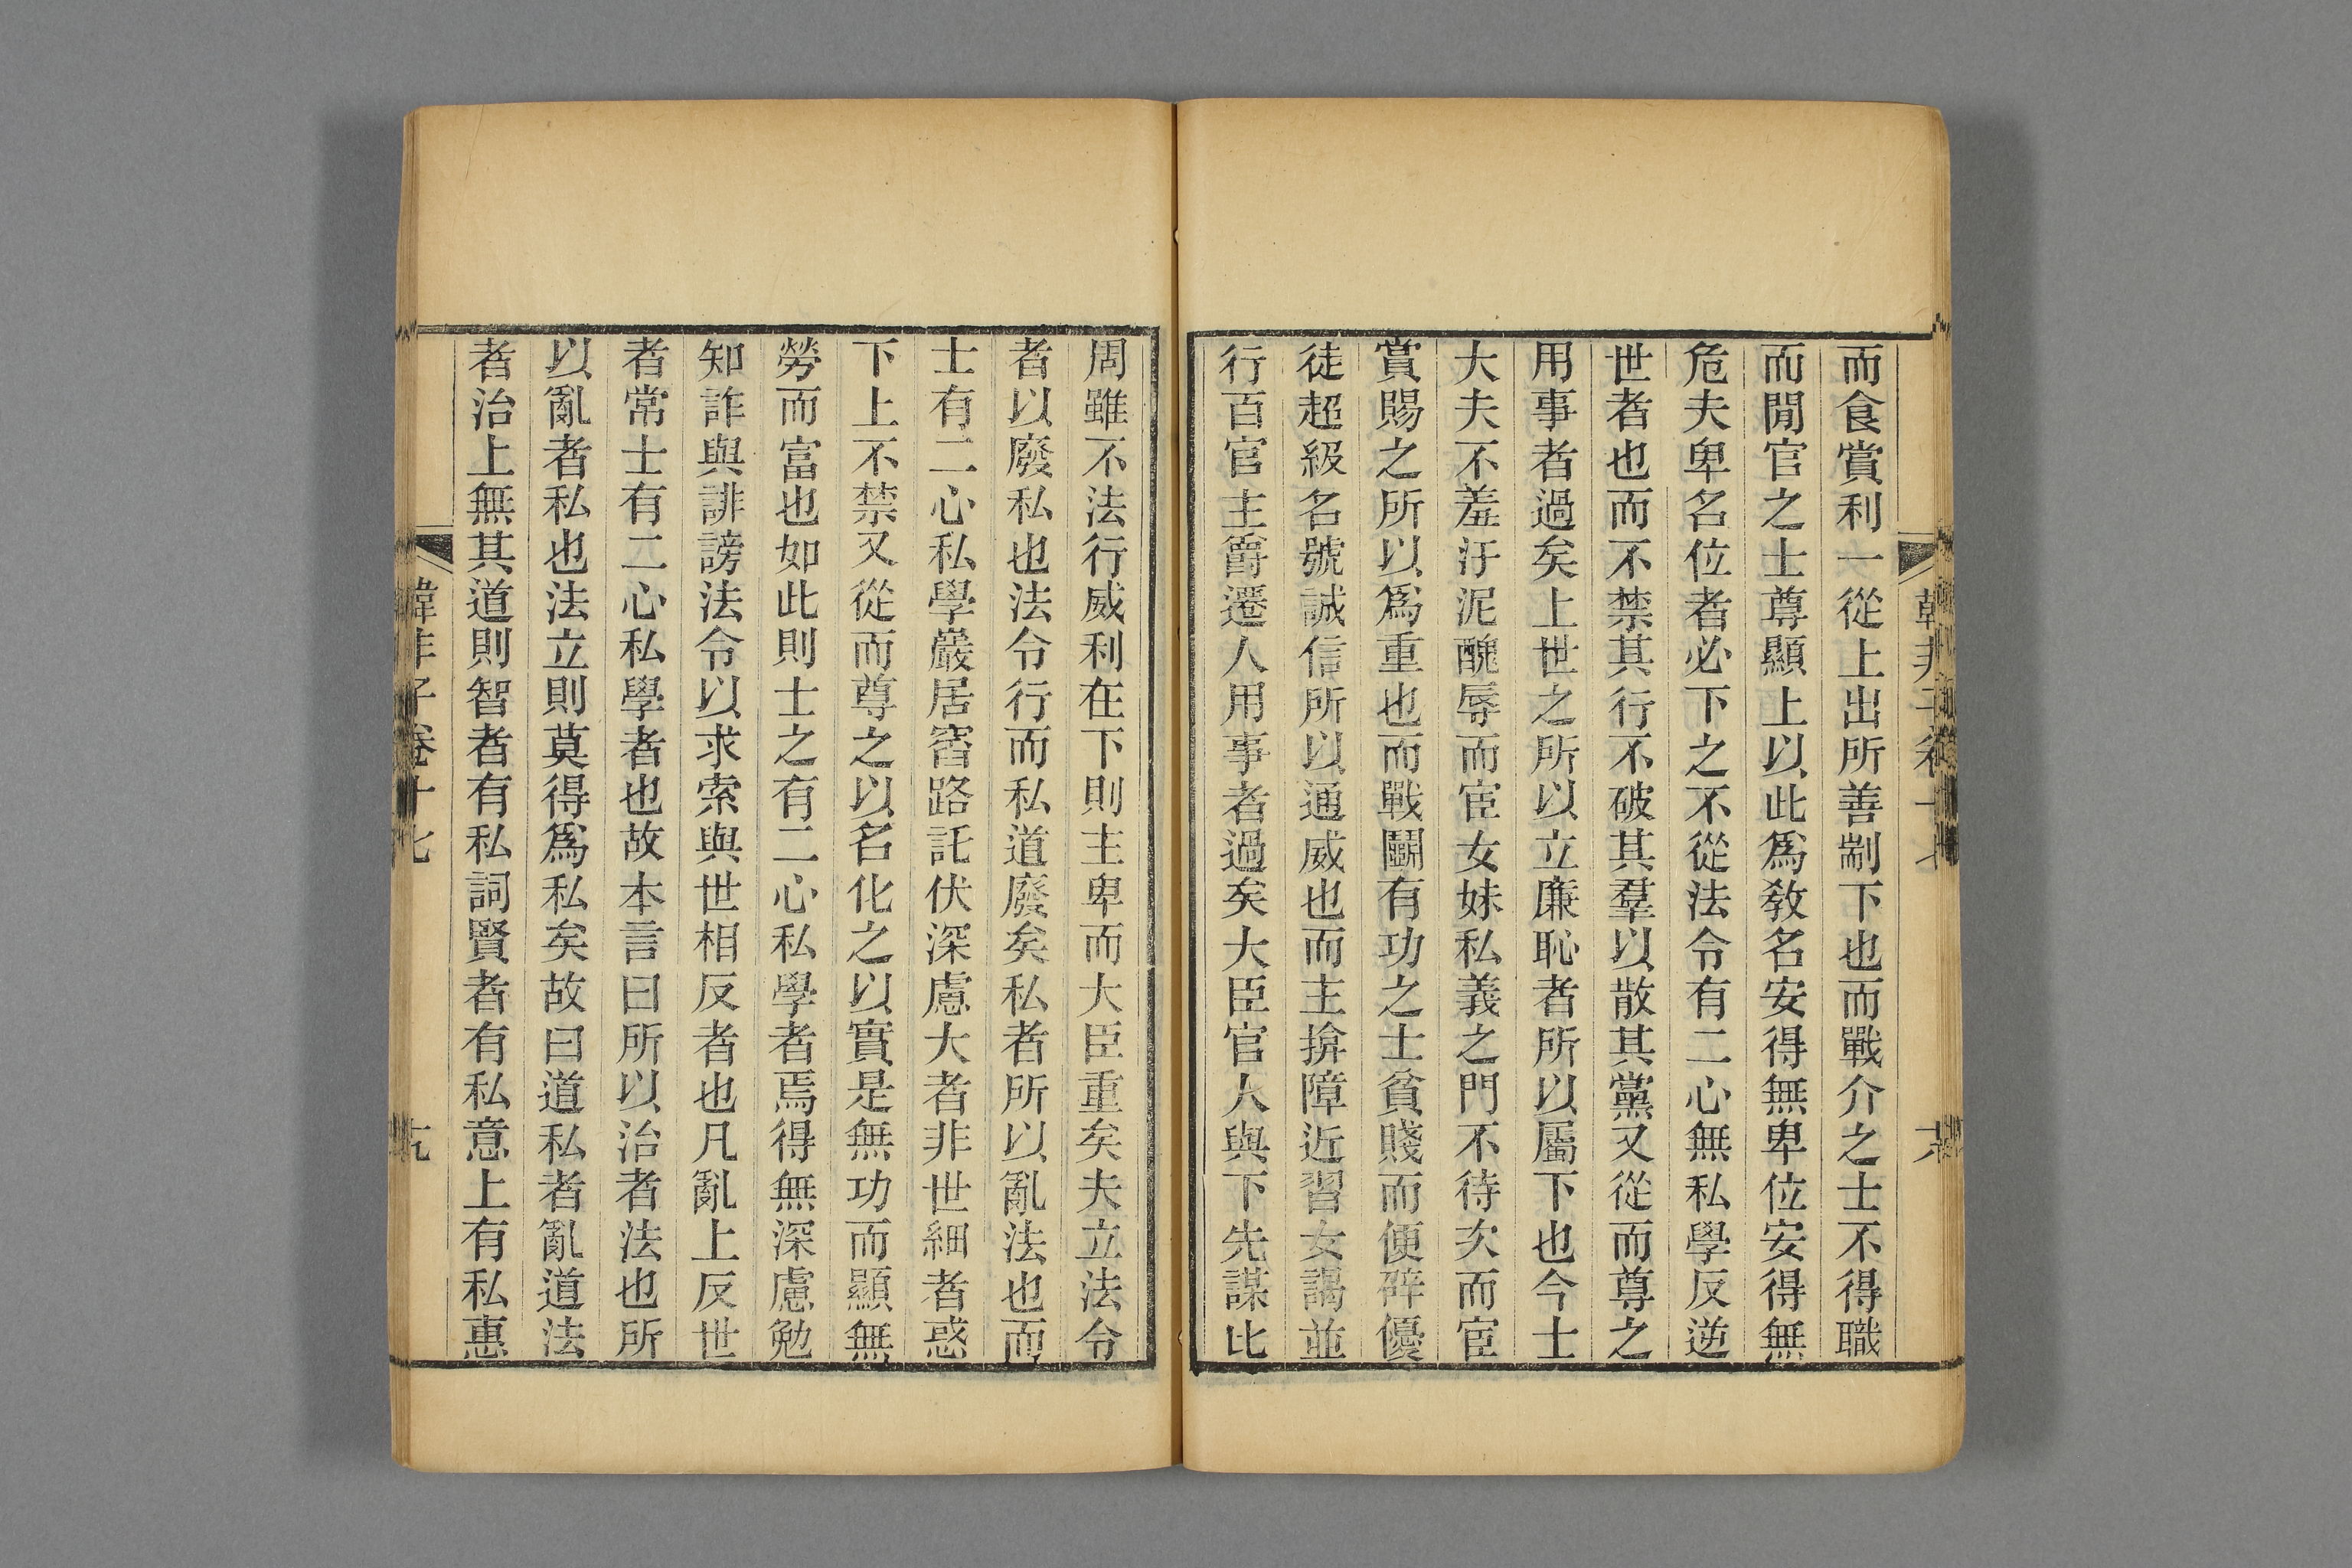 而食賞利一從上出所善剬下也而戰介之士不得職
而閒官之士尊顯上以此爲敎名安得無卑位安得無
危夫卑名位者必下之不從法令有二心無私學反逆
世者也而不禁其行不破其羣以散其黨又從而尊之
用事者過矣上世之所以立廉恥者所以屬下也今士
大夫不羞汙泥醜辱而宦女妹私義之門不待次而宦
賞賜之所以爲重也而戰鬭有功之士貧賤而便辟優
徒超級名號誠信所以通威也而主揜障近習女謁並
行百官主爵遷人用事者過矣大臣官人與下先謀比
周雖不法行威利在下則主卑而大臣重矣夫立法令
者以廢私也法令行而私道廢矣私者所以亂法也而
士有二心私學巖居窞路託伏深慮大者非世細者惑
下上不禁又從而尊之以名化之以實是無功而顯無
勞而富也如此則士之有二心私學者焉得無深慮勉
知詐與誹謗法令以求索與世相反者也凡亂上反世
者常士有二心私學者也故本言曰所以治者法也所
以亂者私也法立則莫得爲私矣故曰道私者亂道法
者治上無其道則智者有私詞賢者有私意上有私惠
韓非子卷十七